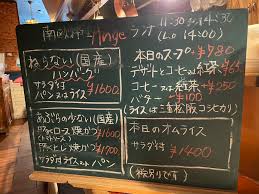 南欧料理 Ange ラオ 11:30 14:30
(L.O 14:00)
ねらない(国産)
ハンバーグ
サラダ付
パンスはライス ¥1600
あぶりの少ない(国産)
豚ロース焼かつ ¥1600
豚ヒレ焼かつ ¥1700
サラダ付ライス又はパン
本日のスープ ¥780
デザートとコーヒー又は紅茶
コーヒー又は紅茶 ¥250
バター ¥100
ライスは三重松阪コシヒカリ
本日のオムライス
サラダ付 ¥1400
(税別です)